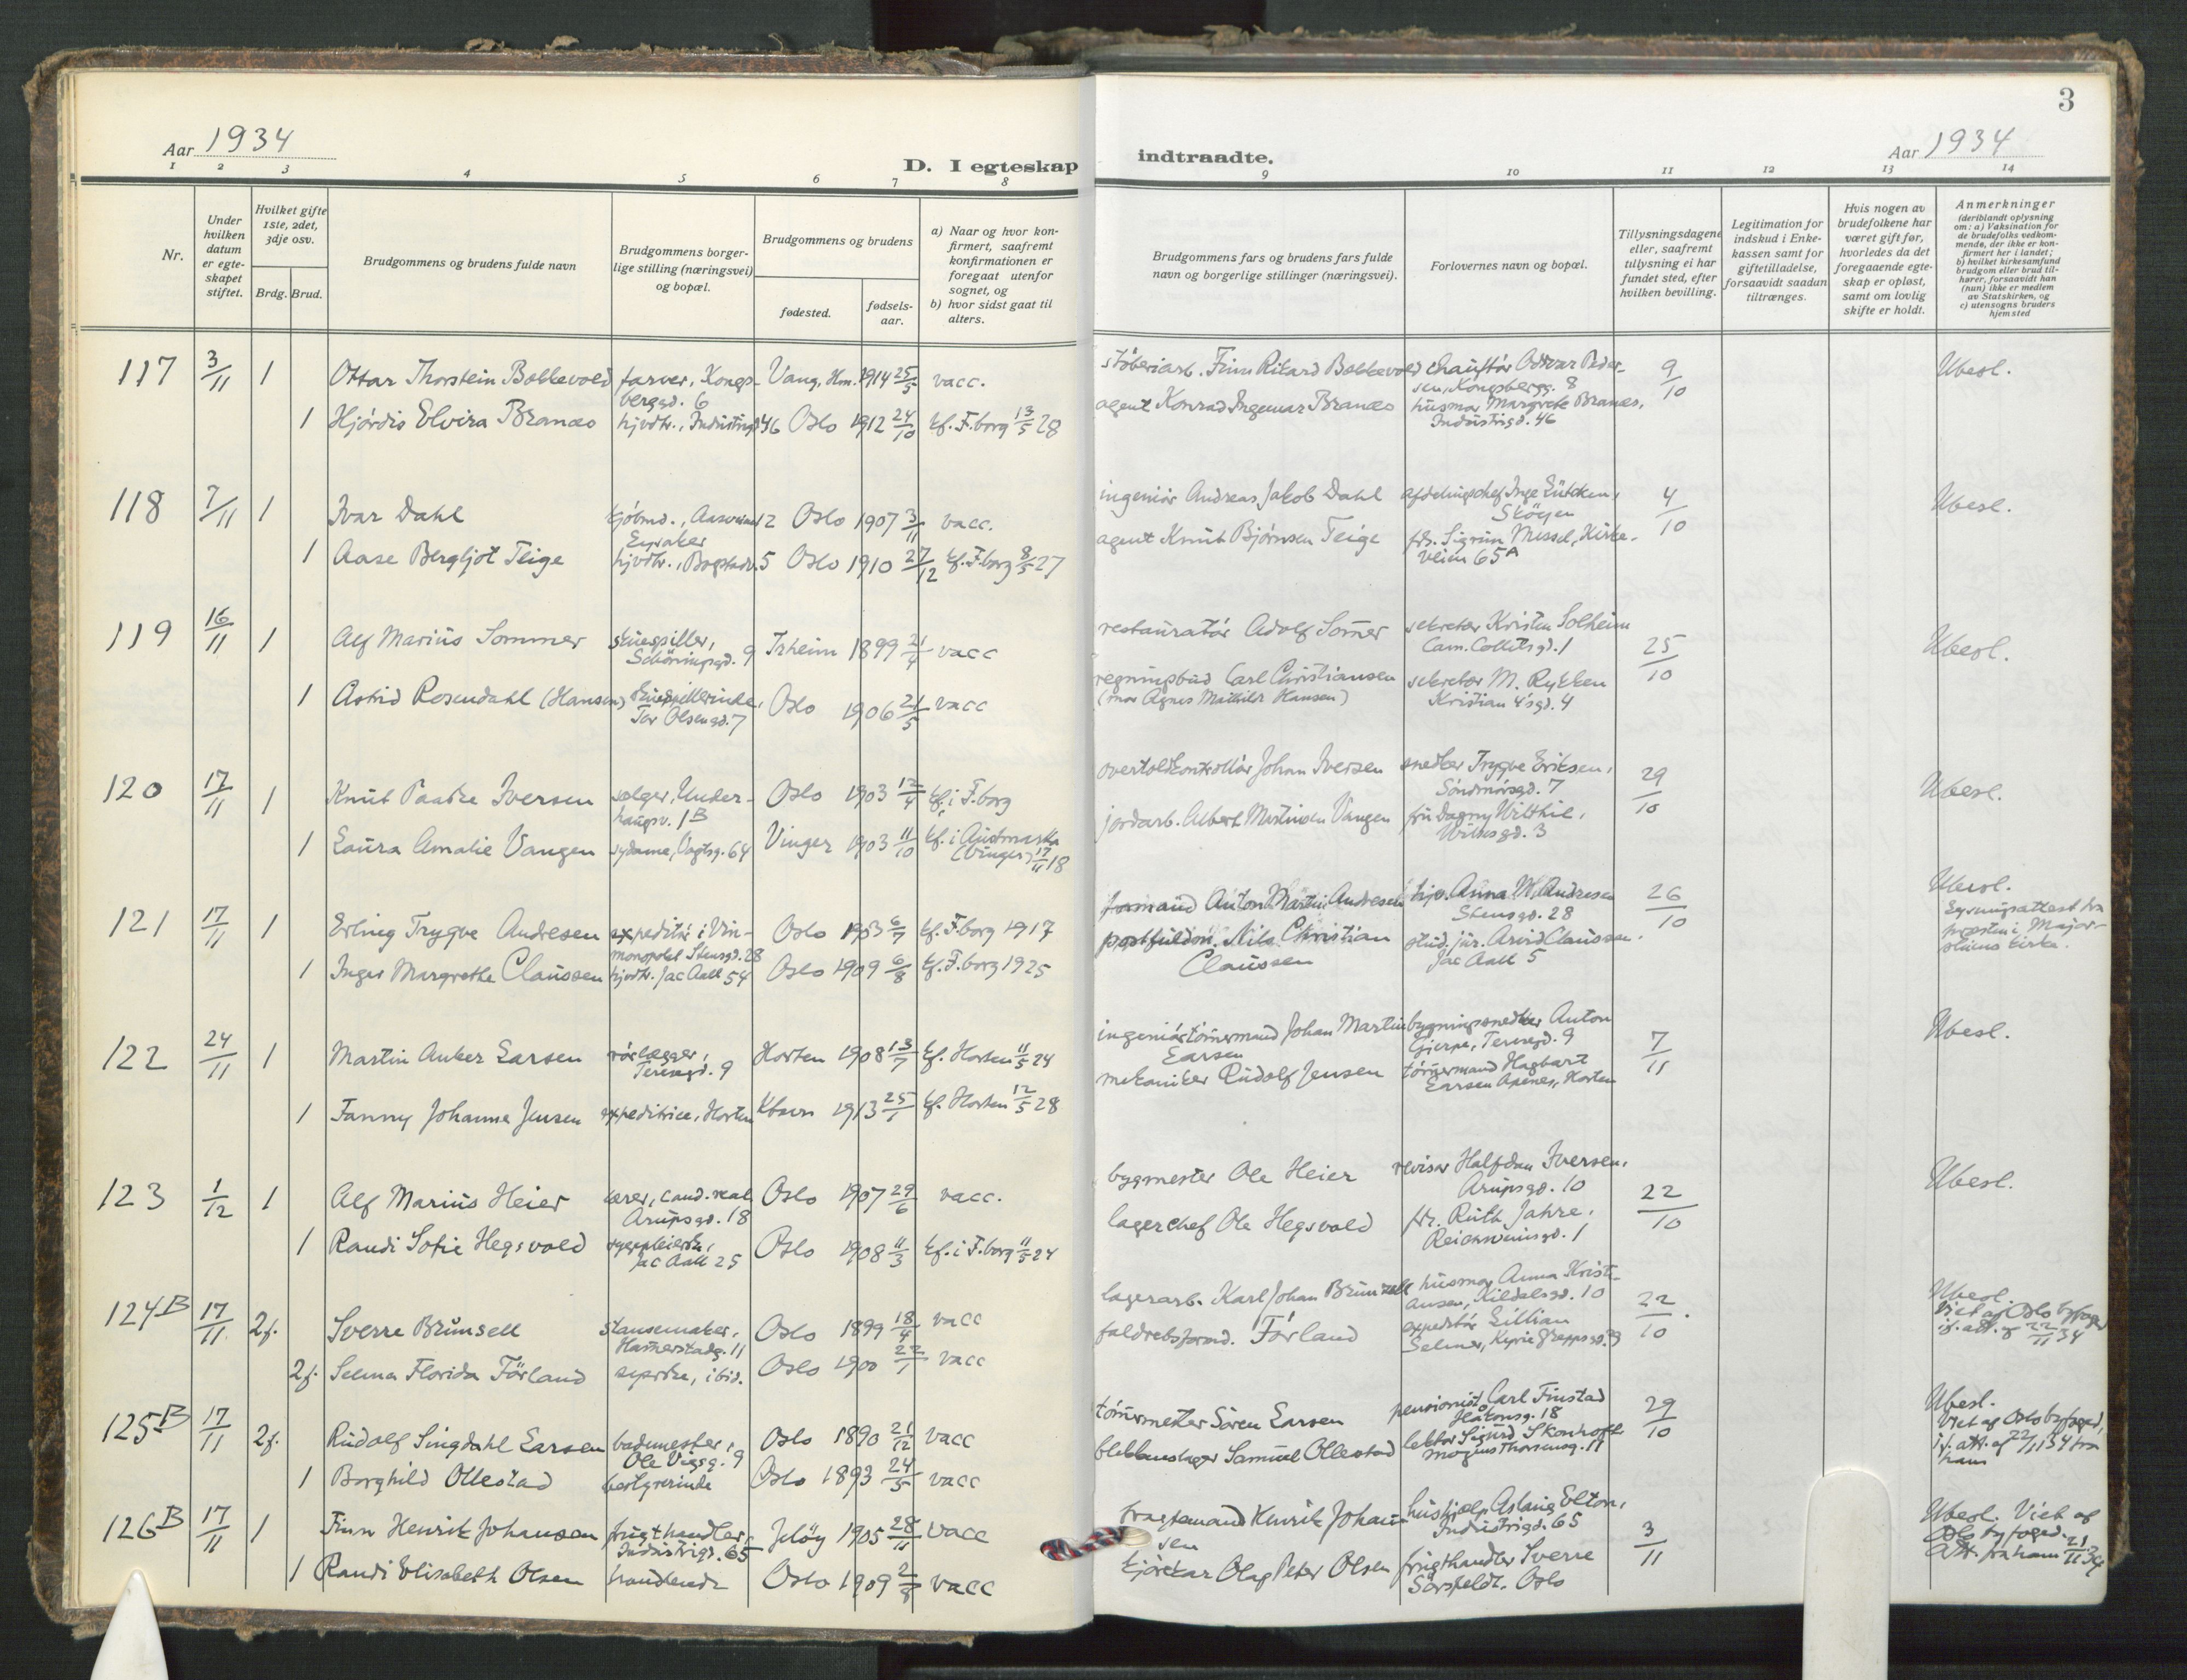 3
Aar 1934
D. I egteskap indtraadte.
Aar 1934
1 2 3 4 5 6 7 8 9 10 11 12 13 14
Nr.
Under hvilken datum er egteskapet stiftet.
Hvilket gifte 1ste, 2det, 3dje osv.
Brdg. Brud.
Brudgommens og brudens fulde navn
Brudgommens borgerlige stilling (næringsvei) og bopæl.
Brudgommens og brudens
fødested.
fødselsaar.
a) Naar og hvor konfirmert, saafremt konfirmationen er foregaat utenfor sognet, og
b) hvor sidst gaat til alters.
Brudgommens fars og brudens fars fulde navn og borgerlige stillinger (næringsvei).
Forlovernes navn og bopæl.
Tillysningsdagene eller, saafremt tillysning ei har fundet sted, efter hvilken bevilling.
Legitimation for indskud i Enkekassen samt for giftetilladelse, forsaavidt saadan tiltrænges.
Hvis nogen av brudefolkene har været gift før, hvorledes da det foregaaende egteskap er opløst, samt om lovlig skifte er holdt.
Anmerkninger
(deriblandt oplysning om: a) Vaksination for de brudefolks vedkommende, der ikke er konfirmert her i landet; b) hvilket kirkesamfund brudgom eller brud tilhører, forsaavidt han (hun) ikke er medlem av Statskirken, og c) utensogns bruders hjemsted
117 3/11 1 Ottar Thorstein Bakkevold farver, Kongsbergsgd. 6 Vang, Hm. 1914 25/5 vacc. støberiarb. Finn Rikard Bakkevold chauffør Oddvar Pedersen, Kongsbergg. 8 9/10 Ubesl.
1 Hjørdis Elvira Branæs hjvdtr., Industrigd 46 Oslo 1912 24/10 kf. F.borg 13/5 28 agent Konrad Ingemar Branæs husmor Margrete Branæs, Industrigd. 46
118 7/11 1 Ivar Dahl kjøbmd., 12 Oslo 1907 3/11 vacc. ingeniør Andreas Jakob Dahl afdelingschef Inge Lütcken, Skøyen 4/10 Ubesl.
1 Aase Bergljot Teige hjvdtr., Bogstadv. 5 Oslo 1910 27/12 kf. F.borg 8/5 27 agent Knut Bjørnsen Teige frk. Sigrun Messel, Kirkeveien 65A
119 16/11 1 Alf Marius Sommer skuespiller, Schøningsgd. 9 Trheim 1899 21/4 vacc restauratør Adolf Somer sekretær Kristen Solheim Cam. Collettsgd. 1 25/10 Ubesl.
1 Astrid Rosendahl (Hansen) skuespillerinde, Tor Olsensgd. 7 Oslo 1906 21/5 vacc regningsbud Carl Christiansen (mor Agnes Mathilde Hansen) sekretær M. Rykken Kristian 4'sgd. 4
120 17/11 1 Knut Paaske Iversen sælger, Underhaugsv. 1B Oslo 1903 12/4 kf. i F.borg overtoldkontrollør Johan Iversen snedker Trygve Eriksen, Søndmørsgd. 7 29/10 Ubesl.
1 Laura Amalie Vangen sydame, Vogtsg. 64 Vinger 1903 11/10 kf. i Austmarka (Vinger) 17/11 18 jordarb. Albert Martinsen Vangen fru Dagny Wilthil, 3
121 17/11 1 Erling Trygve Andresen expeditør i Vinmonopolet Stensgd. 28 Oslo 1903 6/7 kf. F.borg 1917 formand Anton Martin Andresen hjv. Anna M. Andresen Stensgd. 28 26/10 Ubesl. Lysningsattest fra presten i Majorstuens kirke.
1 Inger Margrethe Claussen hjvdtr. Jac Aall 54 Oslo 1909 6/8 kf. F.borg 1925 Nils Christian Claussen stud. jur. Arvid Claussen. Jac Aall 5
122 24/11 1 Martin Anker Larsen rørlægger, Teresgd. 9 Horten 1908 13/7 kf. Horten 11/5 24 ingeniørtømermand Johan Martin Larsen bygningssnedker Anton Gjerpe, Teresgd. 9 7/11 Ubesl.
1 Fanny Johanne Jensen expeditrice, Horten Kbavn 1913 25/1 kf. Horten 12/5 28 mekaniker Rudolf Jensen tømermand Hagbart Larsen Apenes, Horten
123 1/12 1 Alf Marius Heier lærer, cand. real Arupsgd. 18 Oslo 1907 29/6 vacc. bygmester Ole Heier revisor Halfdan Iversen, Arupsgd. 10 22/10 Ubesl.
1 Randi Sofie Hegsvold sygepleierske, Jac Aall 25 Oslo 1908 11/3 kf. i F.borg 11/5 24 lagerchef Ole Hegsvold fr. Ruth Jahre, Reichweinsgd. 1
124B 17/11 2f. Sverre Brunsell stansemaker, Hamerstadg. 11 Oslo 1899 18/4 vacc lagerarb. Karl Johan Brunsell husmor Anna Kristiansen, Kildalsgd. 10 22/10 Ubesl. Viet af Oslo byfoged if. att. af 22/11 34
2f. Selma Florida Førland syerske, ibid. Oslo 1900 22/1 vacc Førland expeditør Lillian Selmer,
125B 17/11 2f. Rudolf Singdahl Larsen bademester, Ole Vigsg. 9 Oslo 1890 21/12 vacc tømermester Søren Larsen pensionist Carl Finstad Håkonsg. 18 29/10 Ubesl. Viet af Oslo byfoged, if. att. af 22/11 34 fra ham
1 Borghild Ollestad bestyrerinde Oslo 1893 24/5 vacc blikkenslager Samuel Ollestad lektor Sigurd Skonhoft Mogens Thorsensg. 11
126B 17/11 1 Finn Henrik Johansen frugthandler, Industrigd. 65 Jeløy 1905 28/11 vacc fragtemand Henrik Johansen hushjelp Aslaug Elton, Industrigd. 65 3/11 Ubesl. Viet af Oslo byfoged. Att. fra ham 21/11 34
1 Randi Elisabeth Olsen handlende Oslo 1909 vacc kjørekar Olaf Peter Olsen frugthandler Sverre Sørsfeldt. Oslo